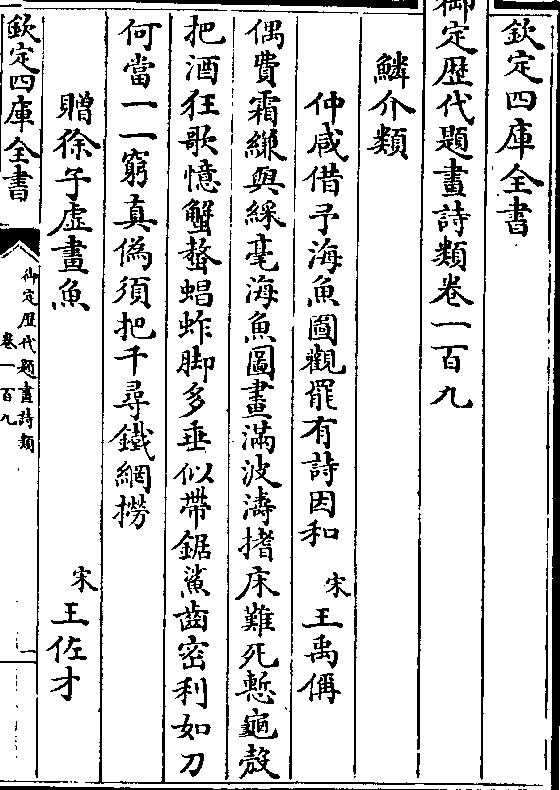 欽定四庫全書
御定歴代題畫詩類卷一百九
鱗介類
仲咸借予海魚圖觀罷有詩因和 宋 王禹偁
偶費霜縑與綵毫海魚圖畫滿波濤搘床難死慙龜殻
把酒狂歌憶蟹螯蜛蝫脚多垂似帶鋸鯊齒密利如刀
何當一一窮真僞須把千尋鐵網撈
贈徐子虚畫魚 宋 王佐才
欽定四庫全書
御定歴代題畫詩類
卷一百九
一